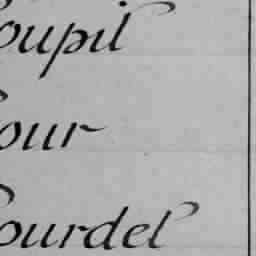 oupil
our
ourdel